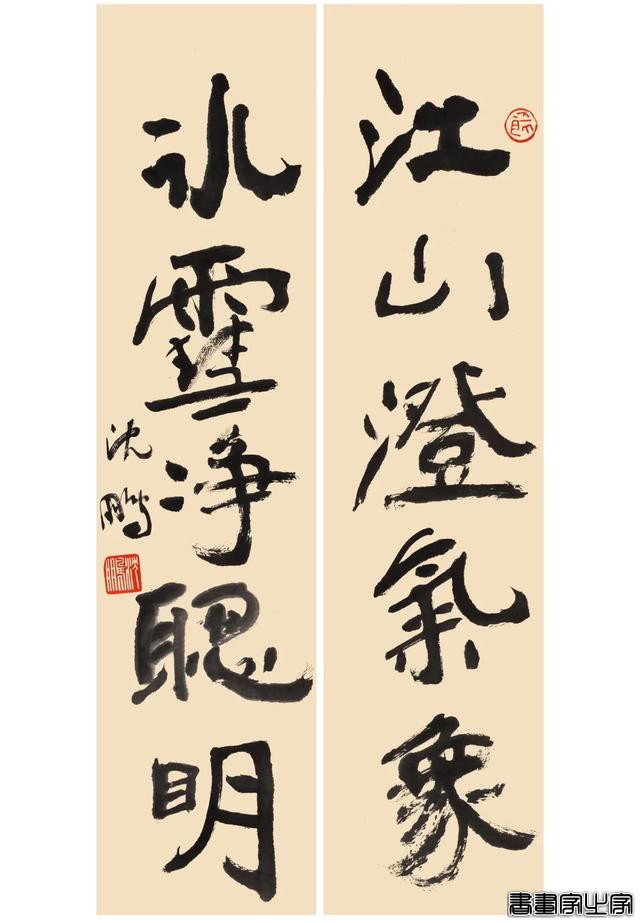 江山澄氣象
冰雪淨聰明
沈鵬
沈鵬
書畫家之家